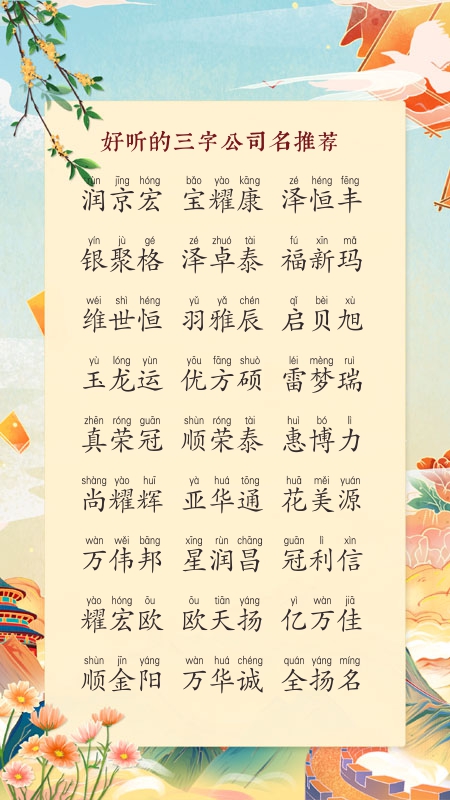 好听的三字公司名推荐
rùn jīng hóng bǎo yào kāng zé héng fēng
润京宏 宝耀康 泽恒丰
yín jù gé zé zhuó tài fú xīn mǎ
银聚格 泽卓泰 福新玛
wéi shì héng yǔ yǎ chén qǐ bèi xù
维世恒 羽雅辰 启贝旭
yù lóng yùn yōu fāng shuò léi mèng ruì
玉龙运 优方硕 雷梦瑞
zhēn róng guān shùn róng tài huì bó lì
真荣冠 顺荣泰 惠博力
shàng yào huī yà huá tōng huā měi yuán
尚耀辉 亚华通 花美源
wàn wěi bāng xīng rùn chāng guān lì xìn
万伟邦 星润昌 冠利信
yào hóng ōu ōu tiān yáng yì wàn jiā
耀宏欧 欧天扬 亿万佳
shùn jīn yáng wàn huá chéng quán yáng míng
顺金阳 万华诚 全扬名